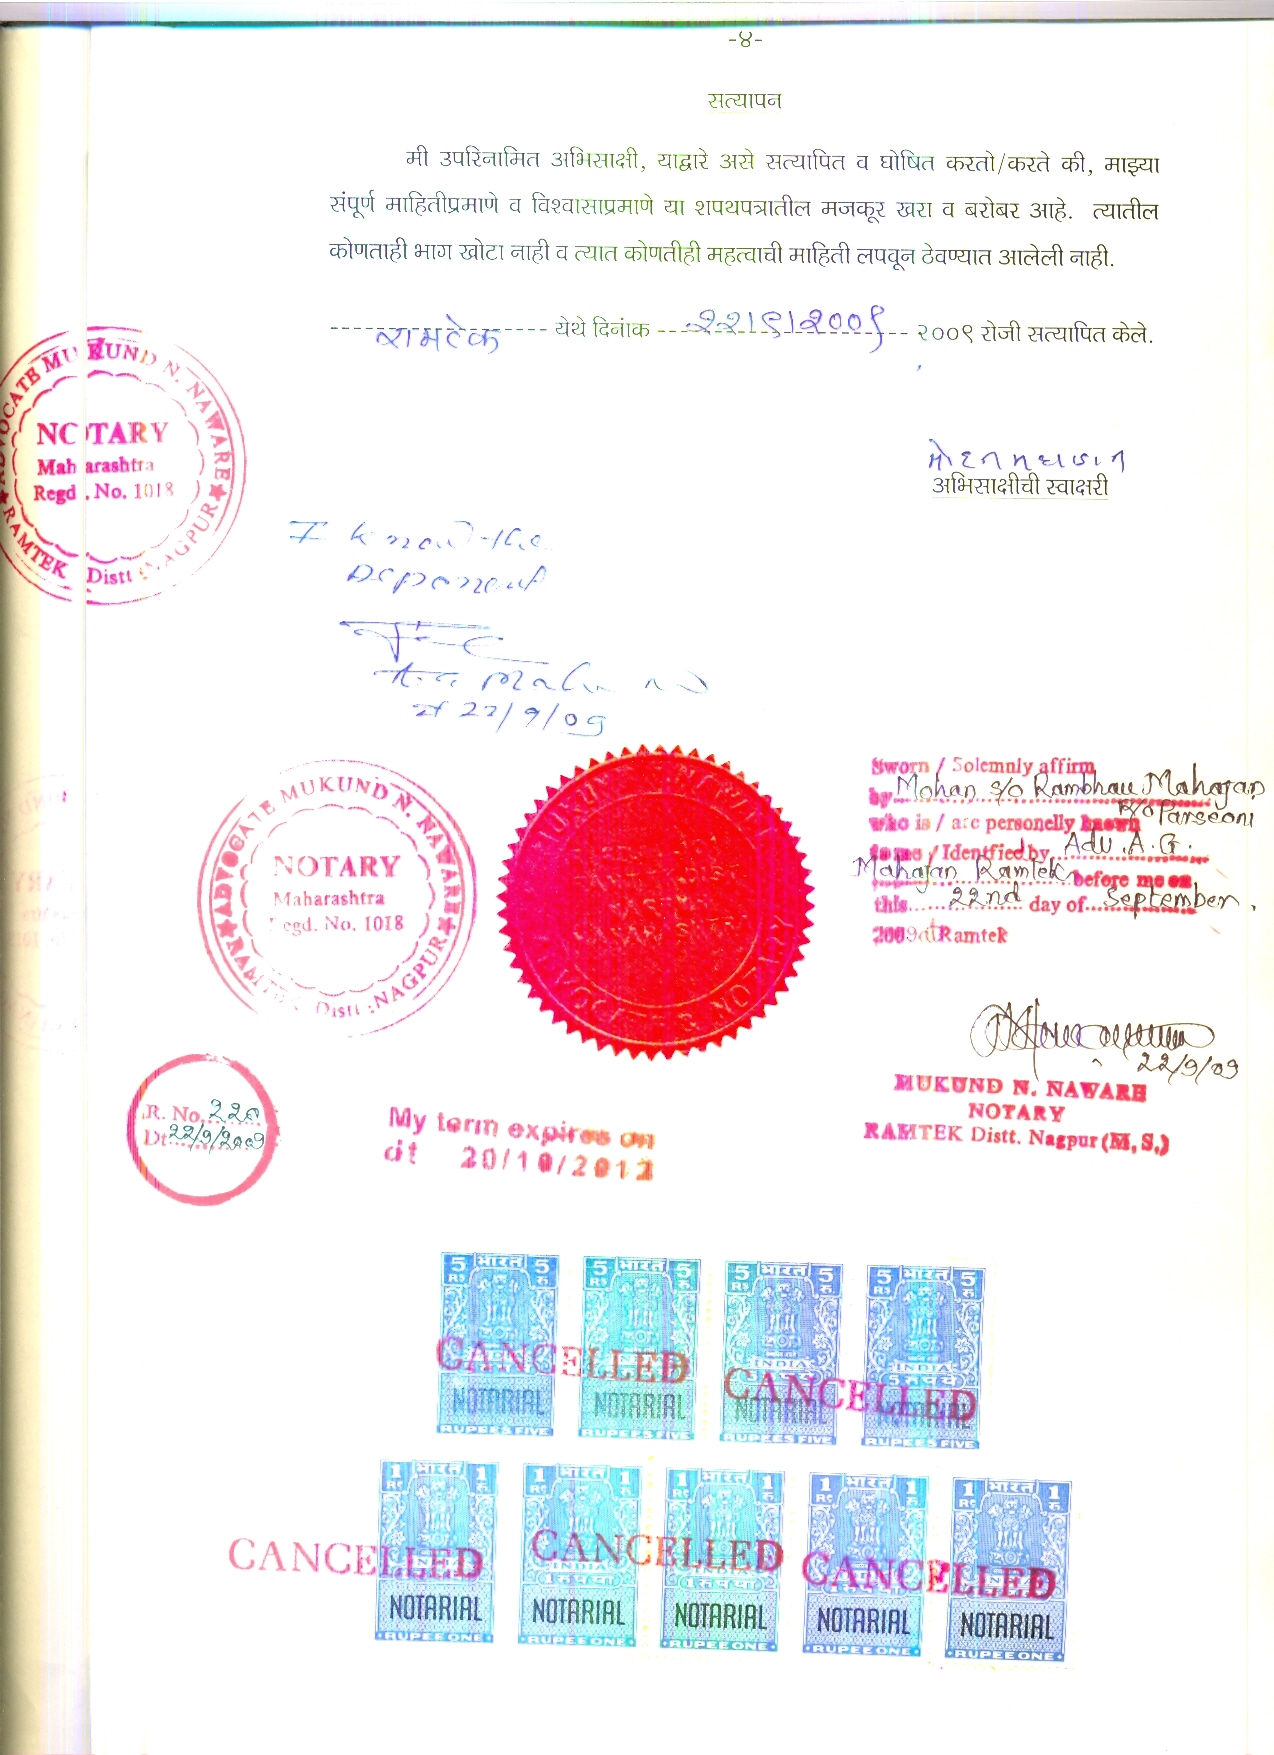 -४-
सत्यापन
मी उपरिनामित अभिसाक्षी, याद्वारे असे सत्यापित व घोषित करतो/करते की, माझ्या
संपूर्ण माहितीप्रमाणे व विश्वासाप्रमाणे या शपथपत्रातील मजकूर खरा व बरोबर आहे. त्यातील
कोणताही भाग खोटा नाही व त्यात कोणतीही महत्वाची माहिती लपवून ठेवण्यात आलेली नाही.
रामटेक येथे दिनांक २२/९/२००९ २००९ रोजी सत्यापित केले.
ADVOCATE MUKUND N. NAWARE
NOTARY
Maharashtra
Regd. No. 1018
RAMTEK Distt. NAGPUR
मोहन महाजन
अभिसाक्षीची स्वाक्षरी
I know the
Deponent
22/9/09
ADVOCATE MUKUND N. NAWARE
NOTARY
Maharashtra
Regd. No. 1018
RAMTEK Distt: NAGPUR
Sworn / Solemnly affirm
by Mohan s/o Rambhau Mahajan
R/o Parseoni
who is / are personelly known
to me / Identfied by Adv. A. G.
Mahajan Ramtek before me on
this 22nd day of September,
2009 at Ramtek
22/9/09
MUKUND N. NAWARE
NOTARY
RAMTEK Distt. Nagpur (M, S,)
R. No. 220
Dt. 22/9/2009
My term expires on
dt 20/10/2012
5 भारत 5
Rs रु
INDIA
NOTARIAL
RUPEES FIVE
5 भारत 5
Rs रु
NOTARIAL
RUPEES FIVE
5 भारत 5
Rs रु
INDIA
NOTARIAL
RUPEES FIVE
5 भारत 5
Rs रु
INDIA
5 रुपये
NOTARIAL
RUPEES FIVE
CANCELLED
CANCELLED
1 भारत 1
Re रु
INDIA
NOTARIAL
RUPEE ONE
1 भारत 1
Re रु
1 रुपया
NOTARIAL
RUPEE ONE
1 भारत 1
Re रु
1 रुपया
NOTARIAL
RUPEE ONE
1 भारत 1
Re रु
INDIA
NOTARIAL
RUPEE ONE
1 भारत 1
Re रु
INDIA
NOTARIAL
RUPEE ONE
CANCELLED
CANCELLED
CANCELLED